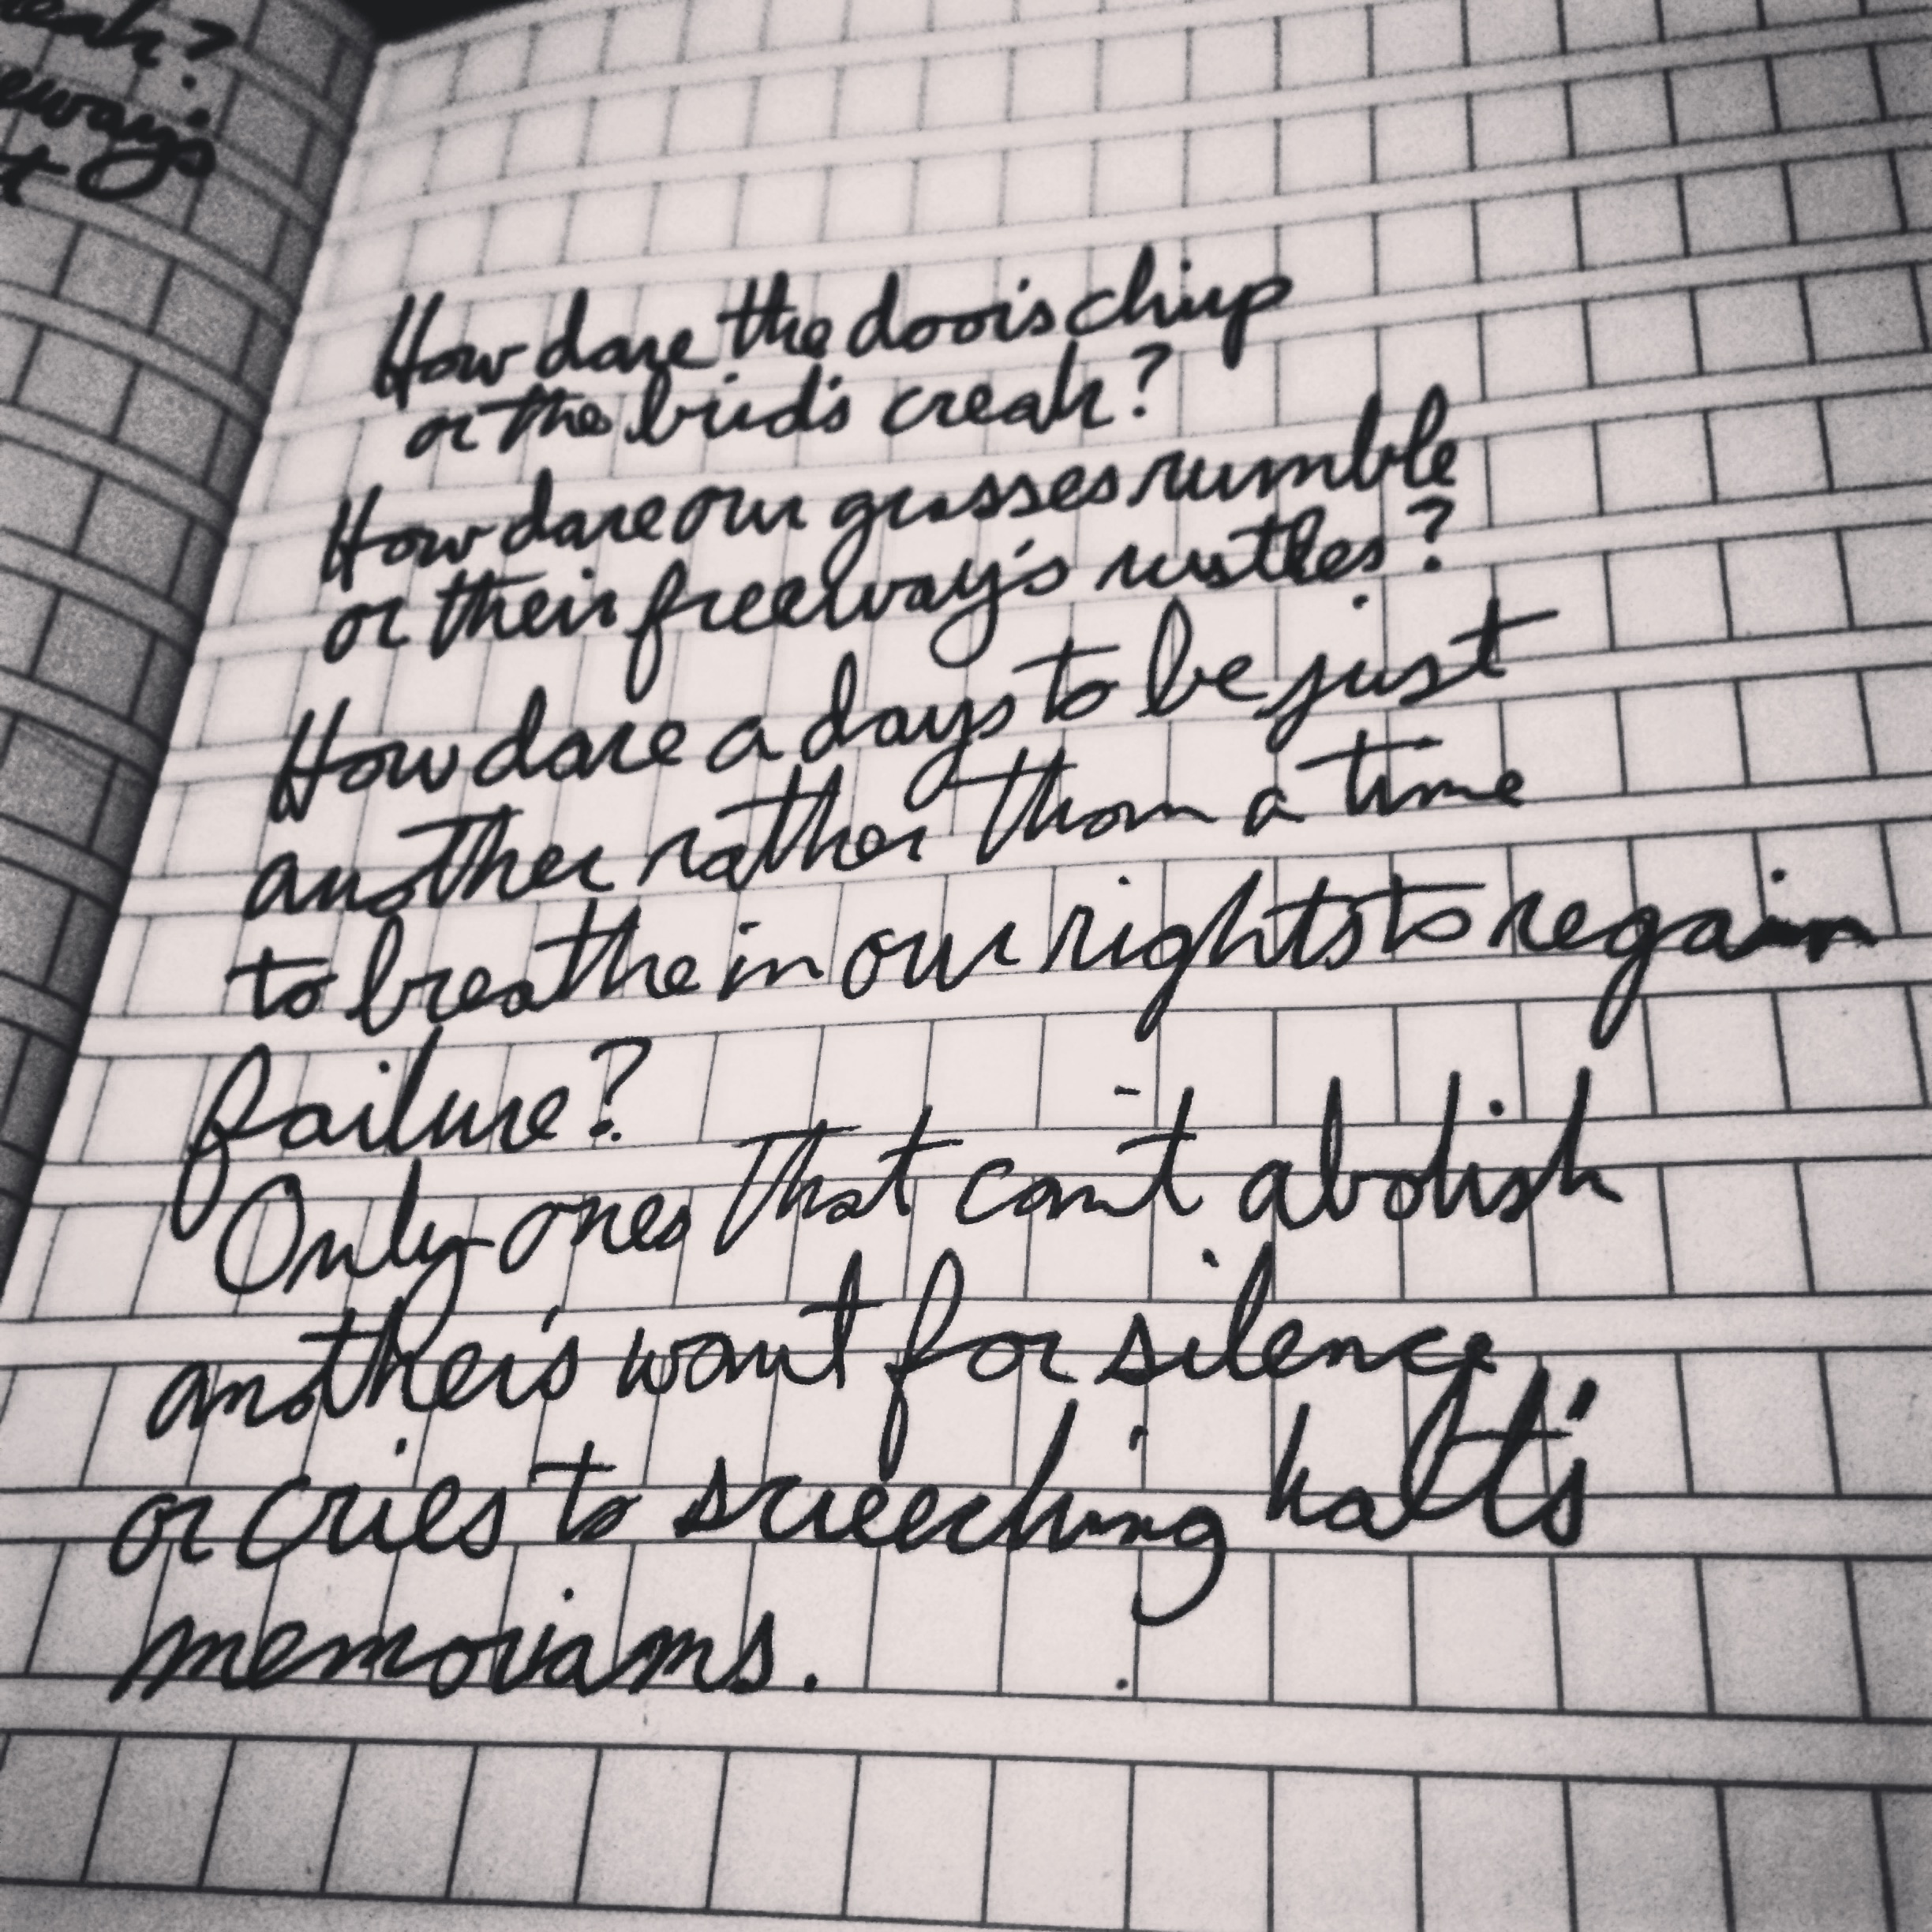 eak?
eway's
t
How dare the door's chirp
or the bird's creak?
How dare our grasses rumble
or their freeway's rustles?
How dare a days to be just
another rather than a time
to breathe in our rights to regain
failure?
Only ones that can't abolish
another's want for silence
or cries to screeching halt's
memoriams.